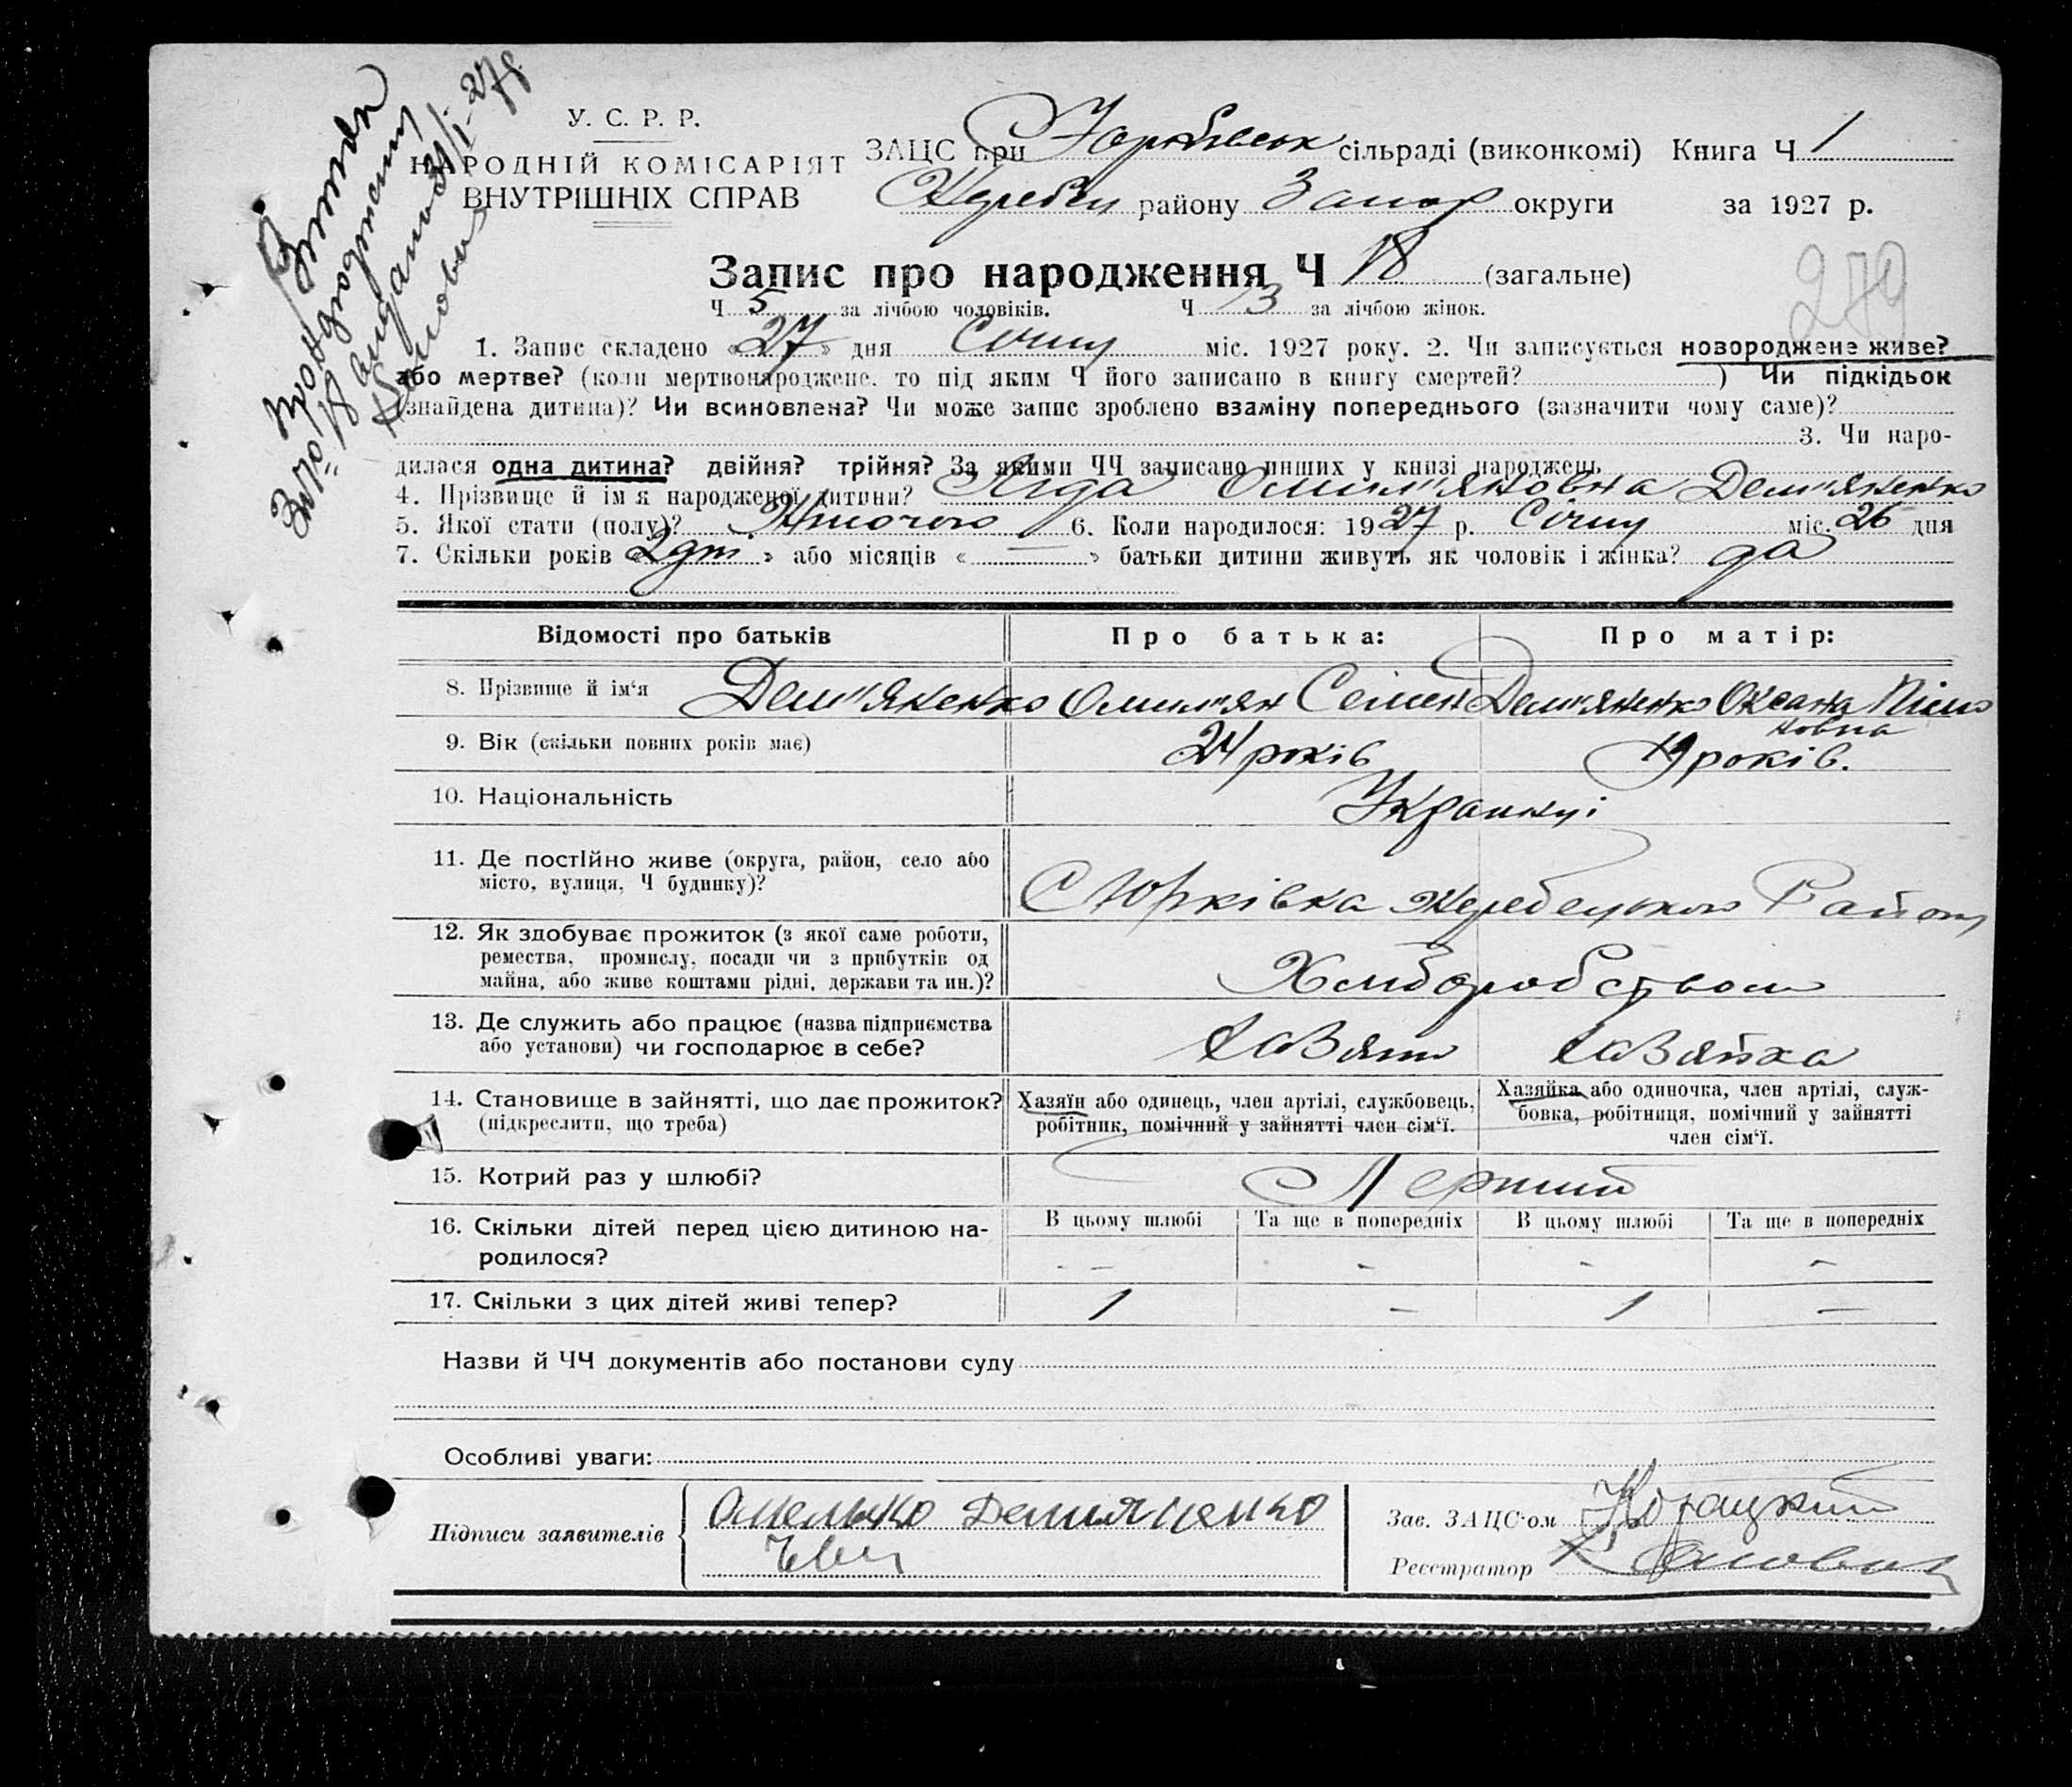 У. С. Р. Р.
НАРОДНІЙ КОМІСАРІЯТ
ВНУТРІШНІХ СПРАВ
ЗАЦС при сільраді (виконкомі) Книга Ч 1
району Запор округи за 1927 р.
Запис про народження Ч 18 (загальне)
Ч 5 за лічбою чоловіків. Ч 13 за лічбою жінок.
279
1. Запис складено «27» дня Січня міс. 1927 року. 2. Чи записується новороджене живе?
або мертве? (коли мертвонароджене, то під яким Ч його записано в книгу смертей? ) Чи підкідьок
(знайдена дитина)? Чи всиновлена? Чи може запис зроблено взаміну попереднього (зазначити чому саме)?
3. Чи наро-
дилася одна дитина? двійня? трійня? За якими ЧЧ записано инших у книзі народжень
4. Прізвище й ім'я народженої дитини? Омилляновна Дем'яненко
5. Якої стати (полу)? Жіночого 6. Коли народилося: 1927 р. Січня міс. 26 дня
7. Скільки років « » або місяців « — » батьки дитини живуть як чоловік і жінка? да
Відомості про батьків Про батька: Про матір:
8. Прізвище й ім'я Дем'яненко Семен Дем'яненко Оксана
новна
9. Вік (скільки повних років має) 24 років 19 років.
10. Національність Українці
11. Де постійно живе (округа, район, село або
місто, вулиця, Ч будинку)? С Юрківка Жеребецького Району
12. Як здобуває прожиток (з якої саме роботи,
ремества, промислу, посади чи з прибутків од
майна, або живе коштами рідні, держави та ин.)? Хліборобством
13. Де служить або працює (назва підприємства
або установи) чи господарює в себе? хазяїн хазяйка
14. Становище в зайнятті, що дає прожиток?
(підкреслити, що треба)
Хазяїн або одинець, член артілі, службовець,
робітник, помічний у зайнятті член сім'ї.
Хазяйка або одиночка, член артілі, служ-
бовка, робітниця, помічний у зайнятті
член сім'ї.
15. Котрий раз у шлюбі? Перший
16. Скільки дітей перед цією дитиною на-
родилося?
В цьому шлюбі Та ще в попередніх В цьому шлюбі Та ще в попередніх
- - - - -
17. Скільки з цих дітей живі тепер? 1 — 1 —
Назви й ЧЧ документів або постанови суду
Особливі уваги:
Підписи заявителів Омелько Демияненко
Зав. ЗАЦС'ом
Реєстратор